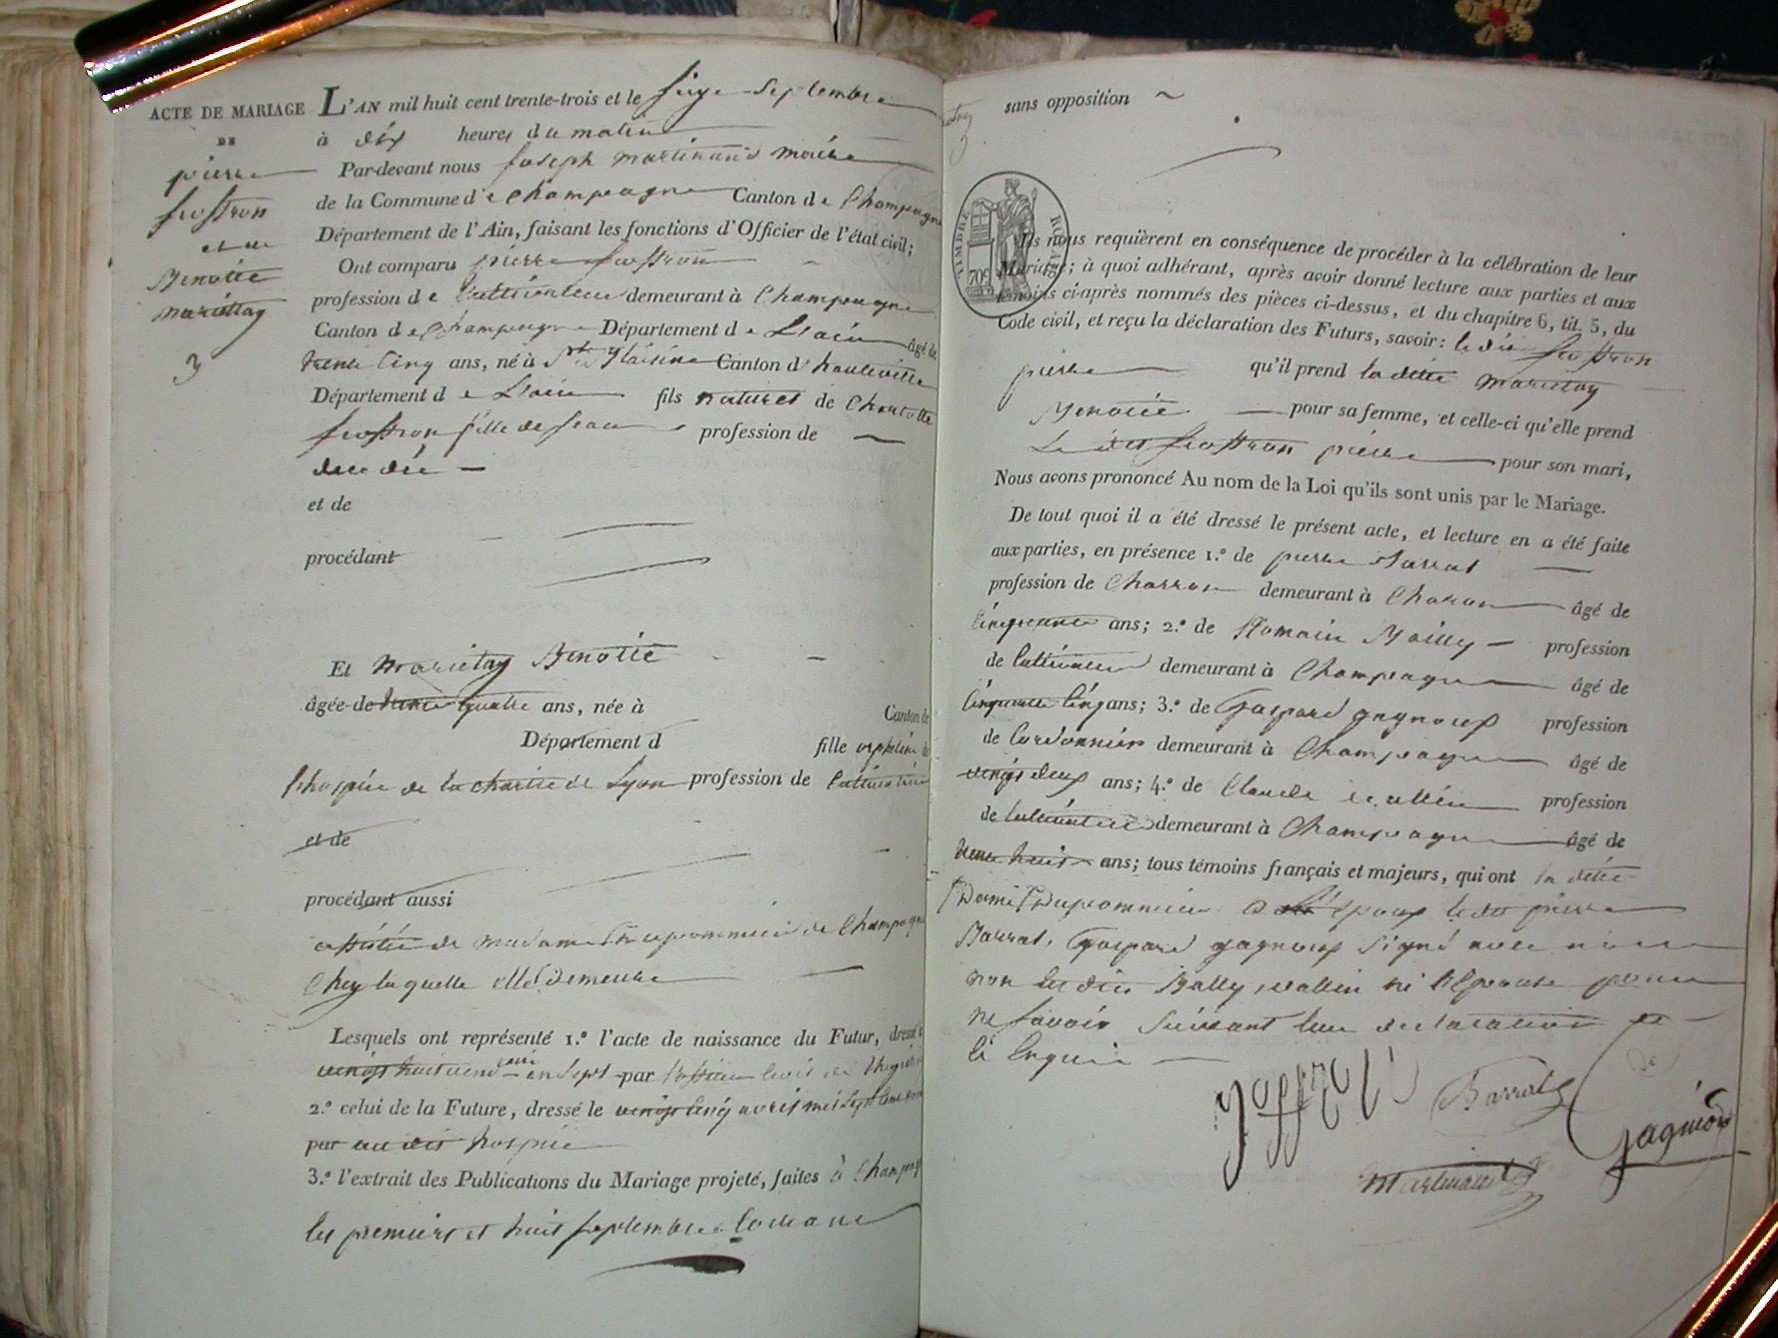 ACTE DE MARIAGE
DE
pierre
et de
Benoite
mariettaz
3
L'AN mil huit cent trente-trois et le seize Septembre
à dix heures du matin
Par-devant nous Joseph martinand maire
de la Commune de Champagne Canton de Champagne
Département de l'Ain, faisant les fonctions d'Officier de l'état civil;
Ont comparu pierre
profession de Cultivateur demeurant à Champagne
Canton de Champagne Département de L'ain âgé de
trente Cinq ans, né à Canton d'hauteville
Département de L'ain fils naturel de Charlotte
fille de profession de
décédée
et de
procédant
Et Benoite
âgée de trente quatre ans, née à Canton de
Département d fille orpheline de
l'hospice de la charité de Lyon profession de
et de
procédant aussi
assistée de madame de Champagne
Chez laquelle elle demeure
Lesquels ont représenté 1.º l'acte de naissance du Futur, dressé
vingt huit an Sept par
2.º celui de la Future, dressé le vingt Cinq avril mil Sept Cent
par au dit hospice
3.º l'extrait des Publications du Mariage projeté, faites à Champagne
les premiers et huit Septembre Courant
sans opposition
TIMBRE ROYAL
709
Ils nous requièrent en conséquence de procéder à la célébration de leur
Mariage; à quoi adhérant, après avoir donné lecture aux parties et aux
témoins ci-après nommés des pièces ci-dessus, et du chapitre 6, tit. 5, du
Code civil, et reçu la déclaration des Futurs, savoir: le dit
pierre qu'il prend la dite
Benoite pour sa femme, et celle-ci qu'elle prend
Le dit pierre pour son mari,
Nous avons prononcé Au nom de la Loi qu'ils sont unis par le Mariage.
De tout quoi il a été dressé le présent acte, et lecture en a été faite
aux parties, en présence 1.º de pierre Barrat
profession de Charron demeurant à âgé de
Cinquante ans; 2.º de Romain Bailly profession
de Cultivateur demeurant à Champagne âgé de
Cinquante Cinq ans; 3.º de Gaspard profession
de Cordonnier demeurant à Champagne âgé de
vingt deux ans; 4.º de Claude profession
de Cultivateur demeurant à Champagne âgé de
trente huit ans; tous témoins français et majeurs, qui ont la dite
époux le dit pierre
Barrat, Gaspard Signé avec nous
non les dits Bally ni l'Epouse pour
ne Savoir Suivant leur declaration
Barrat
Martinand